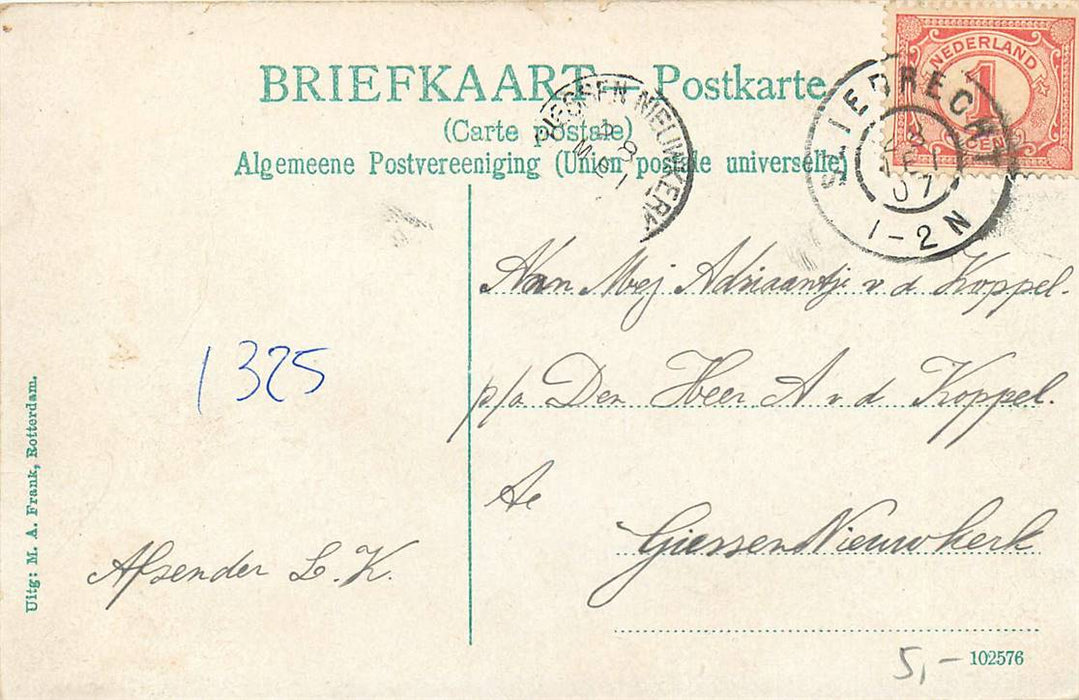 BRIEFKAART = Postkarte
(Carte postale)
Algemeene Postvereeniging (Union postale universelle)
NEDERLAND
1
CENT
SLIEDRECHT
07
1-2 N
GIESSEN NIEUWKERK
Aan Mej Adriaantje v d Koppel.
p/a Den Heer A v d Koppel.
te
Giessen Nieuwkerk
1325
Afzender L. K.
Uitg: M. A. Frank, Rotterdam.
5,-
102576